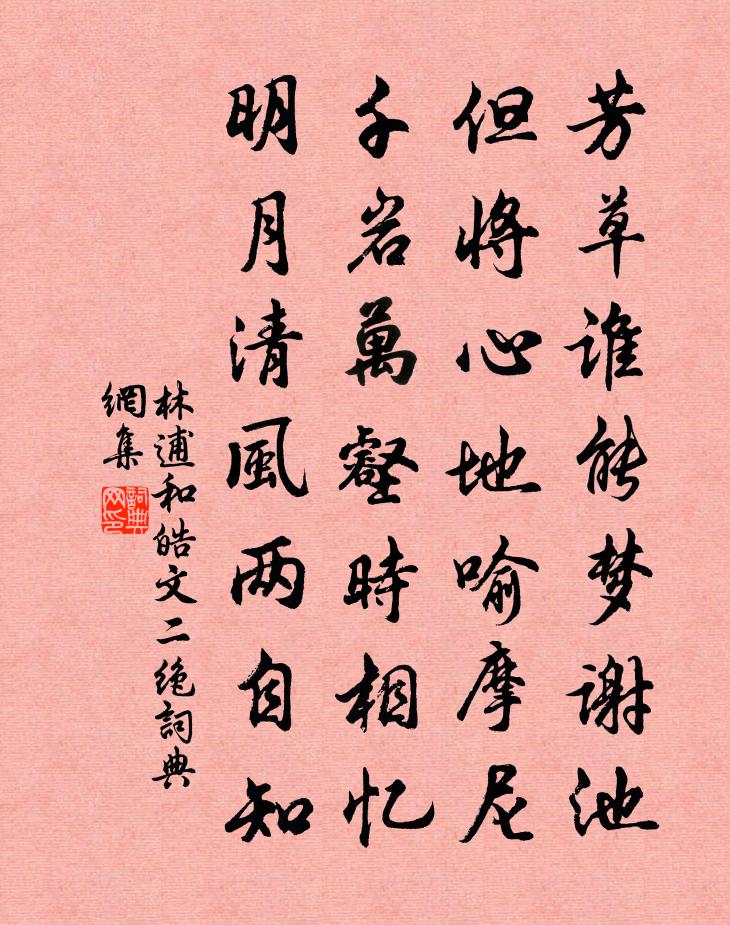 芳草谁能梦谢池
但将心地喻摩尼
千岩萬壑時相忆
明月清風两自知
林逋和皓文二绝詞典
網集
詞典网印